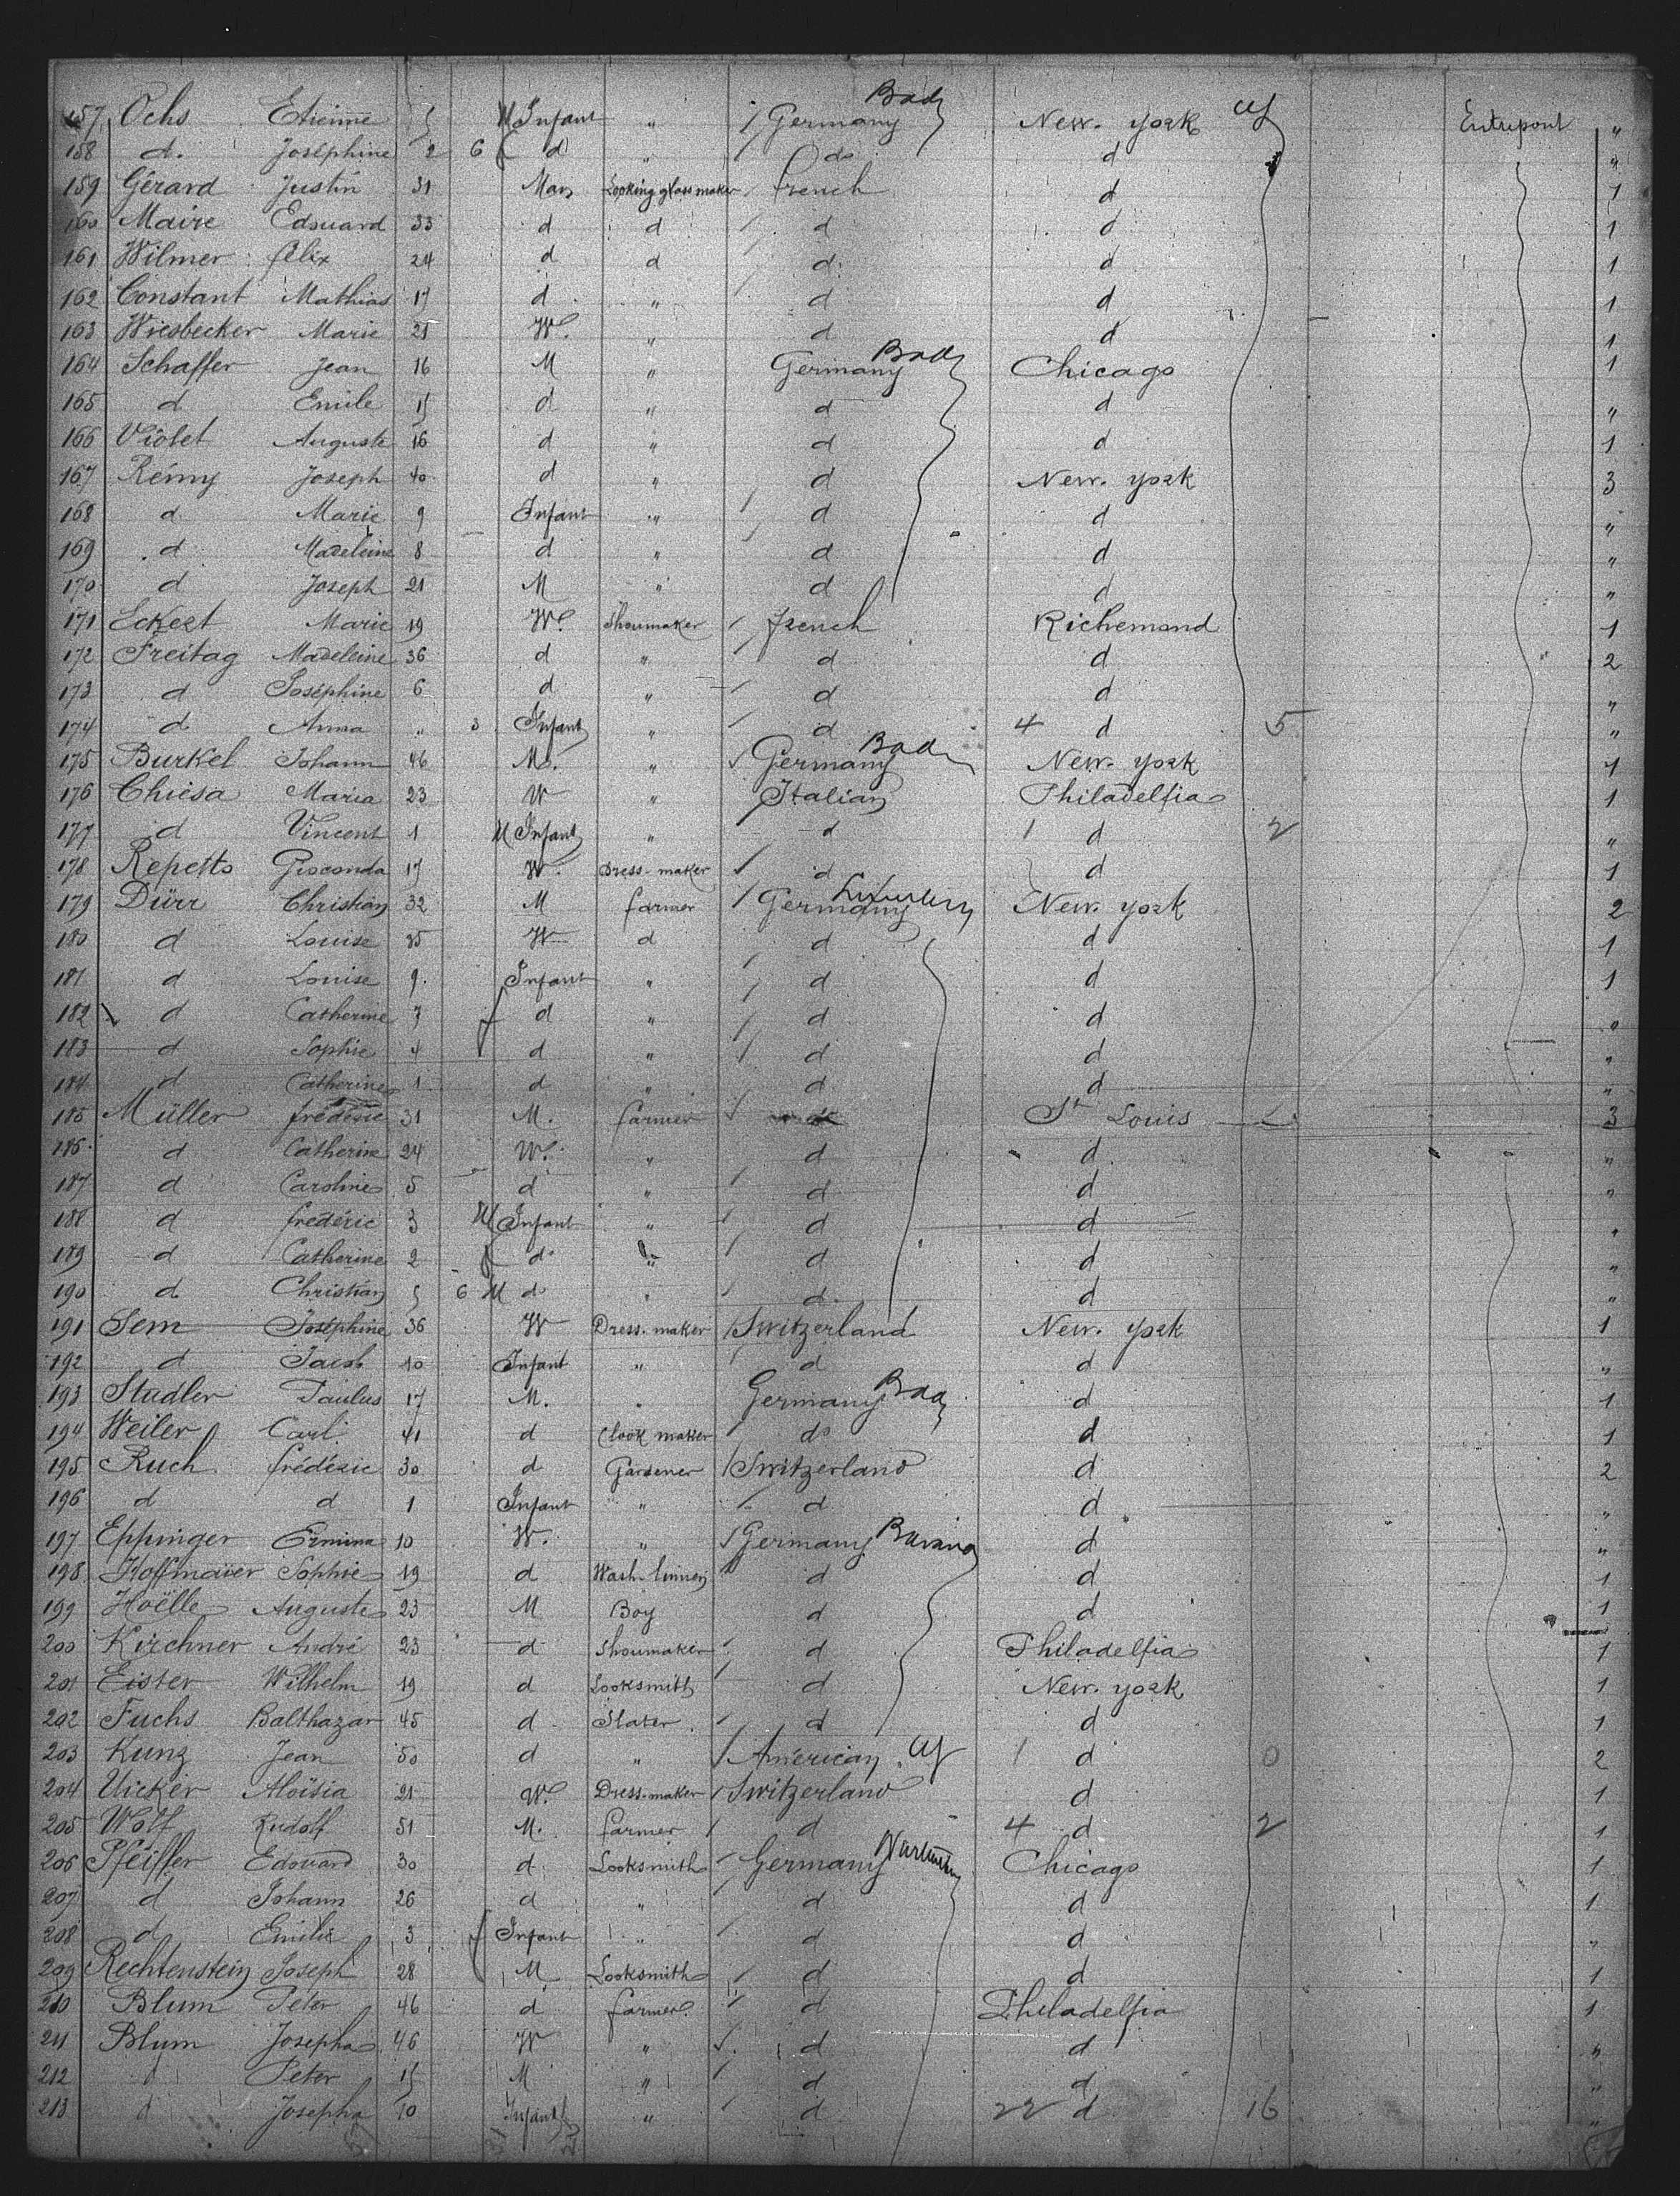 157 Ochs Etienne 5 M Infant " / Germany Bad New. york Entrepont "
158 d. Joséphine 2 6 d " / do d "
159 Gérard Justin 31 Man Looking glass maker / french d 1
160 Maire Edouard 33 d d / d d 1
161 Wilmer félix 24 d d / d. d 1
162 Constant Mathias 17 d " / d d 1
163 Wiesbecker Marie 21 We. " d d 1
164 Schaffer Jean 16 M " Germany Bad Chicago 1
165 d Emile 15 d " d d "
166 Violet Auguste 16 d " d d 1
167 Rémy Joseph 40 d " d New. york 3
168 d Marie 9 Infant " / d d "
169 d Madeleine 8 d " / d d "
170 d Joseph 21 M " d d "
171 Eckert Marie 19 We. Shoumaker / french Richemond 1
172 Freitag Madeleine 36 d " / d d 2
173 d Joséphine 6 d " / d d "
174 d Anna " 3 Infant " / d 4 d 5 "
175 Burkel Johann 46 M. " / Germany Bad New. york 1
176 Chiesa Maria 23 W " Italian Philadelfia 1
177 d Vincent 1 M Infant " / d 1 d 2 "
178 Repetto Gioconda 17 W. Dress-maker / d d 1
179 Dürr Christian 32 M farmer / Germany New. york 2
180 d Louise 35 W d d d 1
181 d Louise 9. Infant " / d d 1
182 d Catherine 7 d " / d d "
183 d Sophie 4 d " / d d "
184 d Catherine 1 d " d d "
185 Müller frédéric 31 M. farmer / St Louis 3
186. d Catherine 24 We. " d d "
187 d Caroline 5 d " / d d "
188 d frédéric 3 M Infant " / d d "
189 d Catherine 2 d " / d d "
190 d Christian 5 6 M d " / d d "
191 Sem Joséphine 36 W Dress-maker / Switzerland New. york 1
192 d Jacob 10 Infant " / d d "
193 Studler Paulus 17 M. " Germany Bad d 1
194 Weiler Carl 41 d Clook maker / do d 1
195 Ruch frédéric 30 d Gardener / Switzerland d 2
196 d d 1 Infant " / d d "
197 Eppinger Ermina 10 W. " / Germany Bavaria d "
198 Hoffmaïer Sophie 19 d Wash-linnen d d 1
199 Hoëlle Auguste 23 M Boy d d 1
200 Kirchner André 23 d Shoumaker / d Philadelfia 1
201 Eister Wilhelm 19 d Looksmith / d New. york 1
202 Fuchs Balthazar 45 d Slater / d d 1
203 Kunz Jean 50 d " / American 1 d 0 2
204 Uicker Aloïsia 21 We. Dress-maker / Switzerland d 1
205 Wolf Rudolf 51 M. farmer / d 4 d 2 1
206 Pfeiffer Edouard 30 d Looksmith / Germany Chicago 1
207 d Johann 26 d " / d d 1
208 d Emilie 3 Infant " / d d "
209 Rechtenstein Joseph 28 M Looksmith / d d 1
210 Blum Péter 46 d farmer / d Philadelfia 1
211 Blum Josepha 46 W " / d d "
212 d Peter 15 M " / d d "
213 d Josepha 10 Infant " / d 22 d 16 "